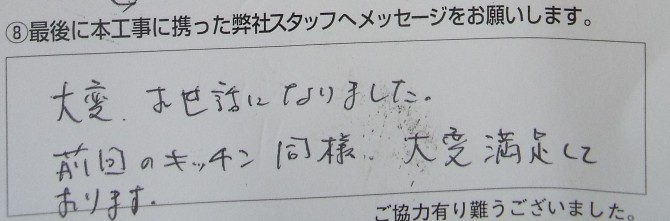 ⑧最後に本工事に携った弊社スタッフへメッセージをお願いします。
大変、お世話になりました。
前回のキッチン同様、大変満足して
おります。
ご協力有り難うございました。